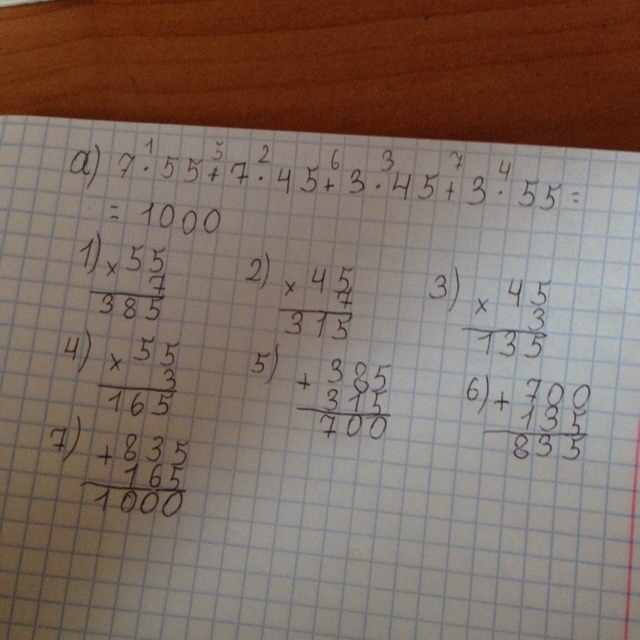 1 5 2 6 3 7 4
а) 7·55+7·45+3·45+3·55=
= 1000
1) × 55
7
385
2) × 45
7
315
3) × 45
3
135
4) × 55
3
165
5) + 385
315
700
6) + 700
135
835
7) + 835
165
1000